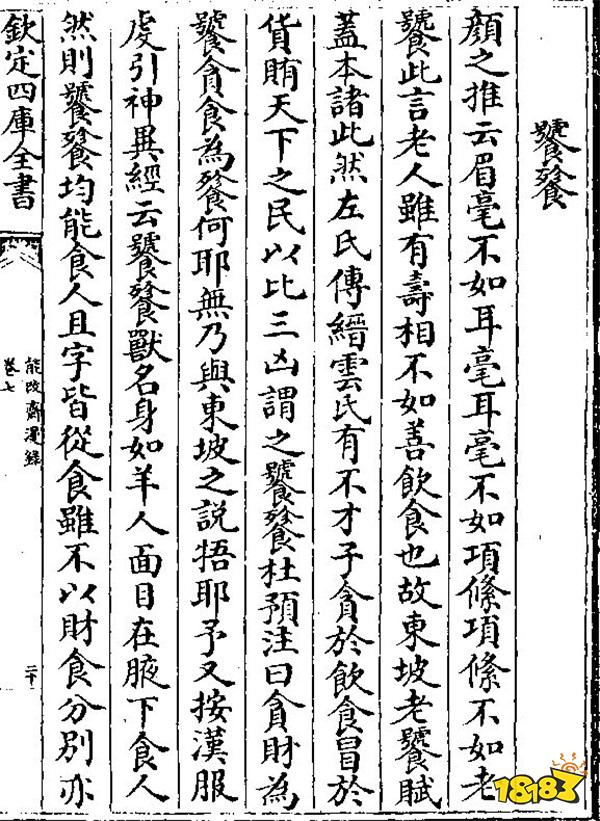 饕餮
顔之推云眉毫不如耳毫耳毫不如項絛項絛不如老
饕此言老人雖有壽相不如善飲食也故東坡老饕賦
蓋本諸此然左氏傳縉雲氏有不才子貪於飲食冒於
貨賄天下之民以比三凶謂之饕餮杜預注曰貪財為
饕貪食為餮何耶無乃與東坡之説牾耶予又按漢服
虔引神異經云饕餮獸名身如羊人面目在腋下食人
然則饕餮均能食人且字皆從食雖不以財食分別亦
欽定四庫全書
能改齋漫録
卷七
二十
18183